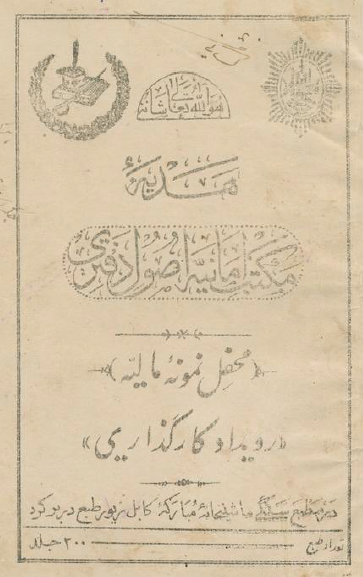 هوالله تعالی شانه
هدیهٔ
مکتب امانیه اصول دفتری
(محفل نمونهٔ مالیه)
«رویداد کارگذاری»
در مطبع سنگی ماشینخانهٔ مبارکهٔ کابل زیور طبع دربر کرد
تعداد طبع ۳۰۰ جلد